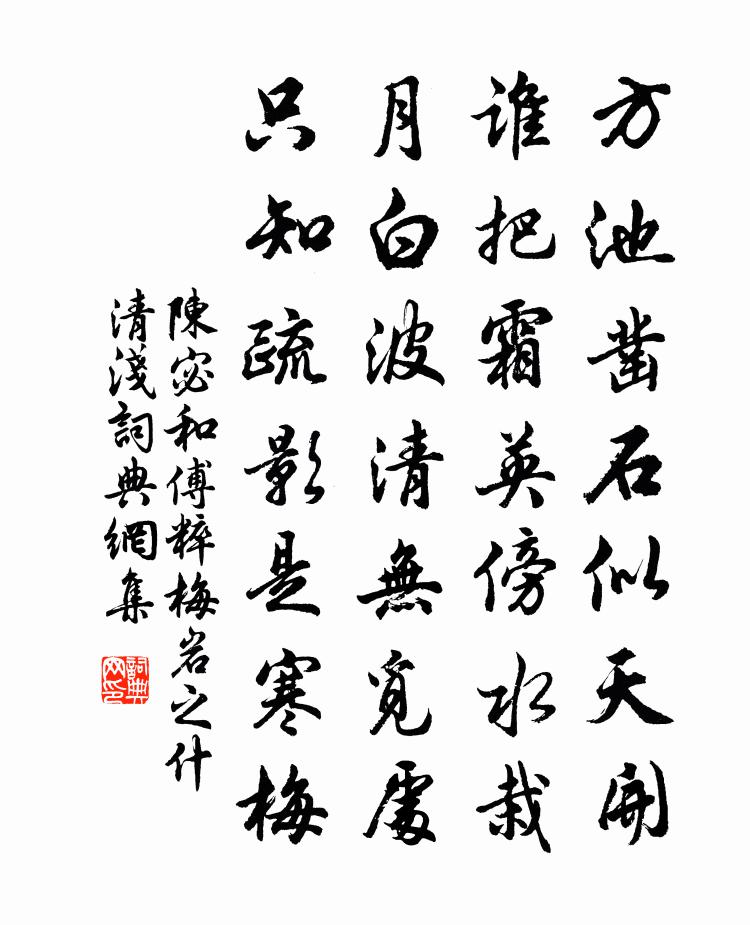 方池凿石似天開
誰把霜英傍水栽
月白波清無覓處
只知疏影是寒梅
陳宓和傅粹梅岩之什
清淺詞典網集
詞典网印